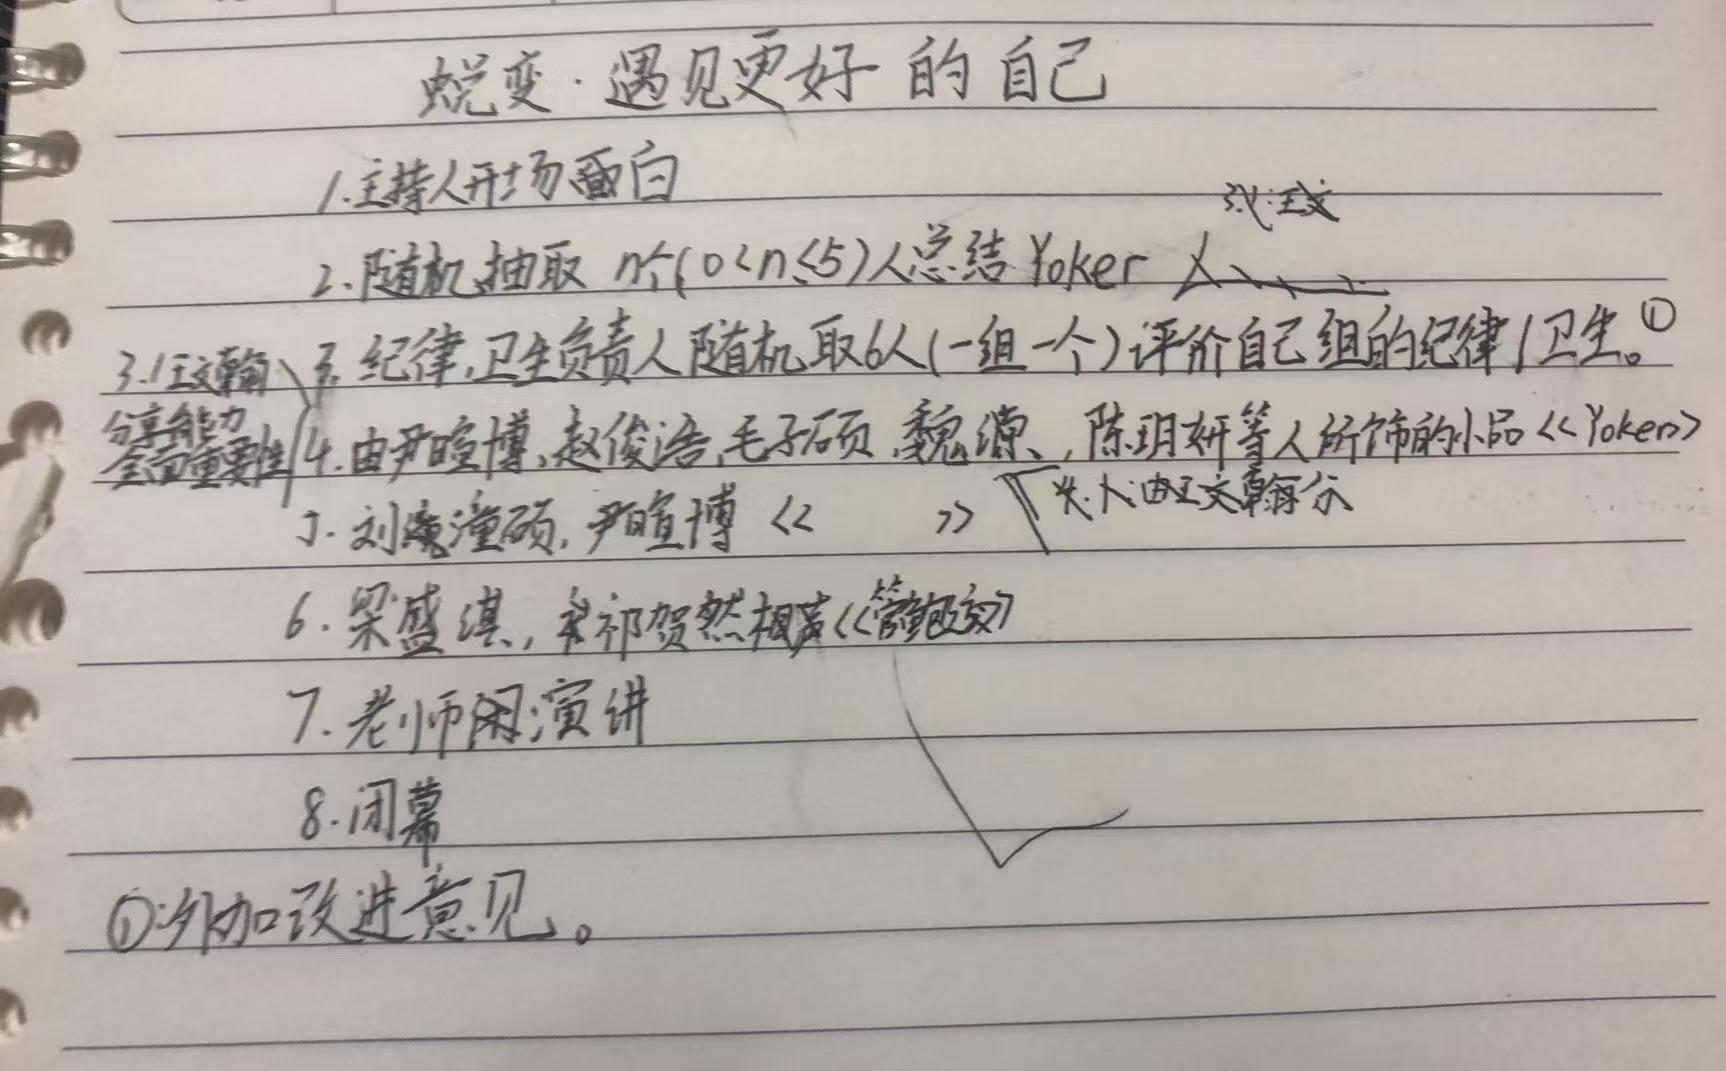 蜕变·遇见更好的自己
1.主持人开场白
2.随机抽取 n个(0<n≤5)人总结Yoker
3. 纪律,卫生负责人随机取6人(一组一个)评价自己组的纪律/卫生。①
3.1王文翰
分享能力
全面重要性
4.由尹暄博,赵俊浩,毛子硕,魏源、,陈玥妍等人所饰的小品<<Yoker>>
由王文翰分
5.刘潼硕,尹暄博<< >>
6.梁盛淇,祁贺然相声<<管鲍交>>
7.老师演讲
8.闭幕
①:外加改进意见。